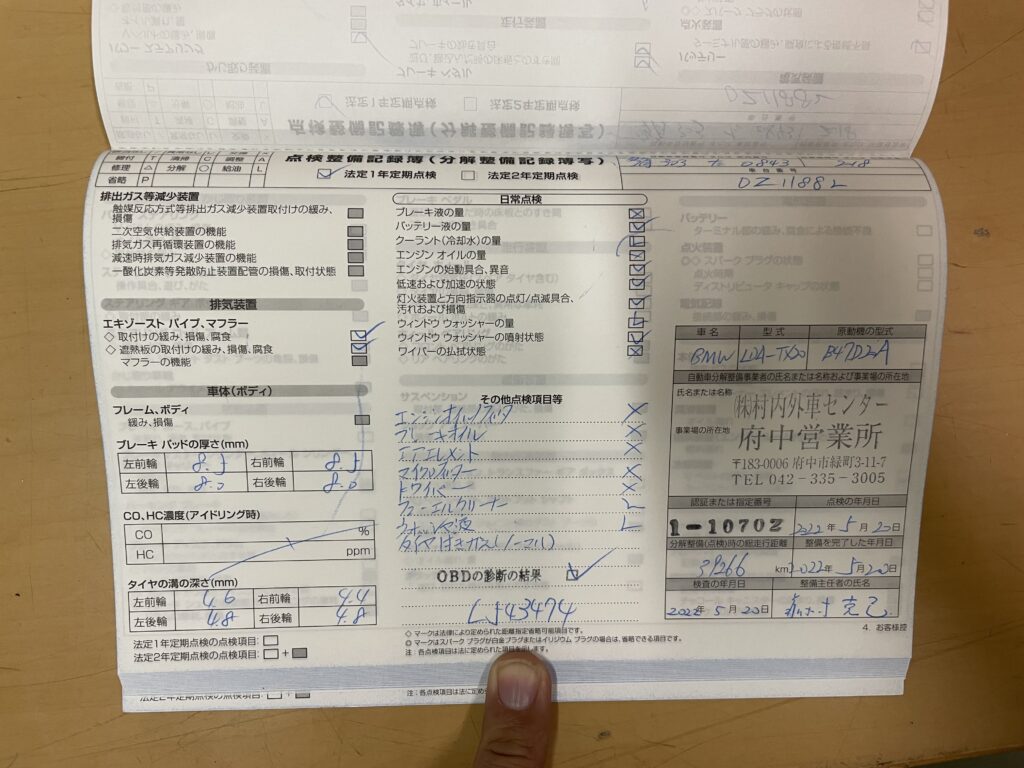 点検整備記録簿(分解整備記録簿写)
法定1年定期点検
法定2年定期点検
締付 T 清掃 C 調整 A
修理 △ 分解 ○ 給油 L
省略 P
車台番号
DZ11882
排出ガス等減少装置
触媒反応方式等排出ガス減少装置取付けの緩み、
損傷
二次空気供給装置の機能
排気ガス再循環装置の機能
減速時排気ガス減少装置の機能
一酸化炭素等発散防止装置配管の損傷、取付状態
排気装置
エキゾースト パイプ、マフラー
◇ 取付けの緩み、損傷、腐食
◇ 遮熱板の取付けの緩み、損傷、腐食
マフラーの機能
車体(ボディ)
フレーム、ボディ
緩み、損傷
ブレーキ パッドの厚さ(mm)
左前輪 8.5 右前輪 8.5
左後輪 8.0 右後輪 8.0
CO、HC濃度(アイドリング時)
CO %
HC ppm
タイヤの溝の深さ(mm)
左前輪 4.6 右前輪 4.4
左後輪 4.8 右後輪 4.8
法定1年定期点検の点検項目:
法定2年定期点検の点検項目: +
日常点検
ブレーキ液の量
バッテリー液の量
クーラント(冷却水)の量
エンジン オイルの量
エンジンの始動具合、異音
低速および加速の状態
灯火装置と方向指示器の点灯/点滅具合、
汚れおよび損傷
ウィンドウ ウォッシャーの量
ウィンドウ ウォッシャーの噴射状態
ワイパーの払拭状態
その他点検項目等
エンジンオイル/フィルタ ×
ブレーキオイル ×
エアエレメント ×
マイクロフィルター ×
ワイパー ×
フューエルクリーナー L
ウォッシャ液 L
OBDの診断の結果
43474
◇ マークは法律により定められた距離指定省略可能項目です。
◎ マークはスパーク プラグが白金プラグまたはイリジウム プラグの場合は、省略できる項目です。
注:各点検項目は法に定められた項目を示します。
車名 型式 原動機の型式
BMW LDA-TX20 B47D20A
自動車分解整備事業者の氏名または名称および事業場の所在地
氏名または名称
㈱村内外車センター
事業場の所在地
府中営業所
〒183-0006 府中市緑町3-11-7
TEL 042-335-3005
認証または指定番号 点検の年月日
1-10702 2022年5月20日
分解整備(点検)時の総走行距離 整備を完了した年月日
39266 km 2022年5月20日
検査の年月日 整備主任者の氏名
2022年5月20日
4. お客様控